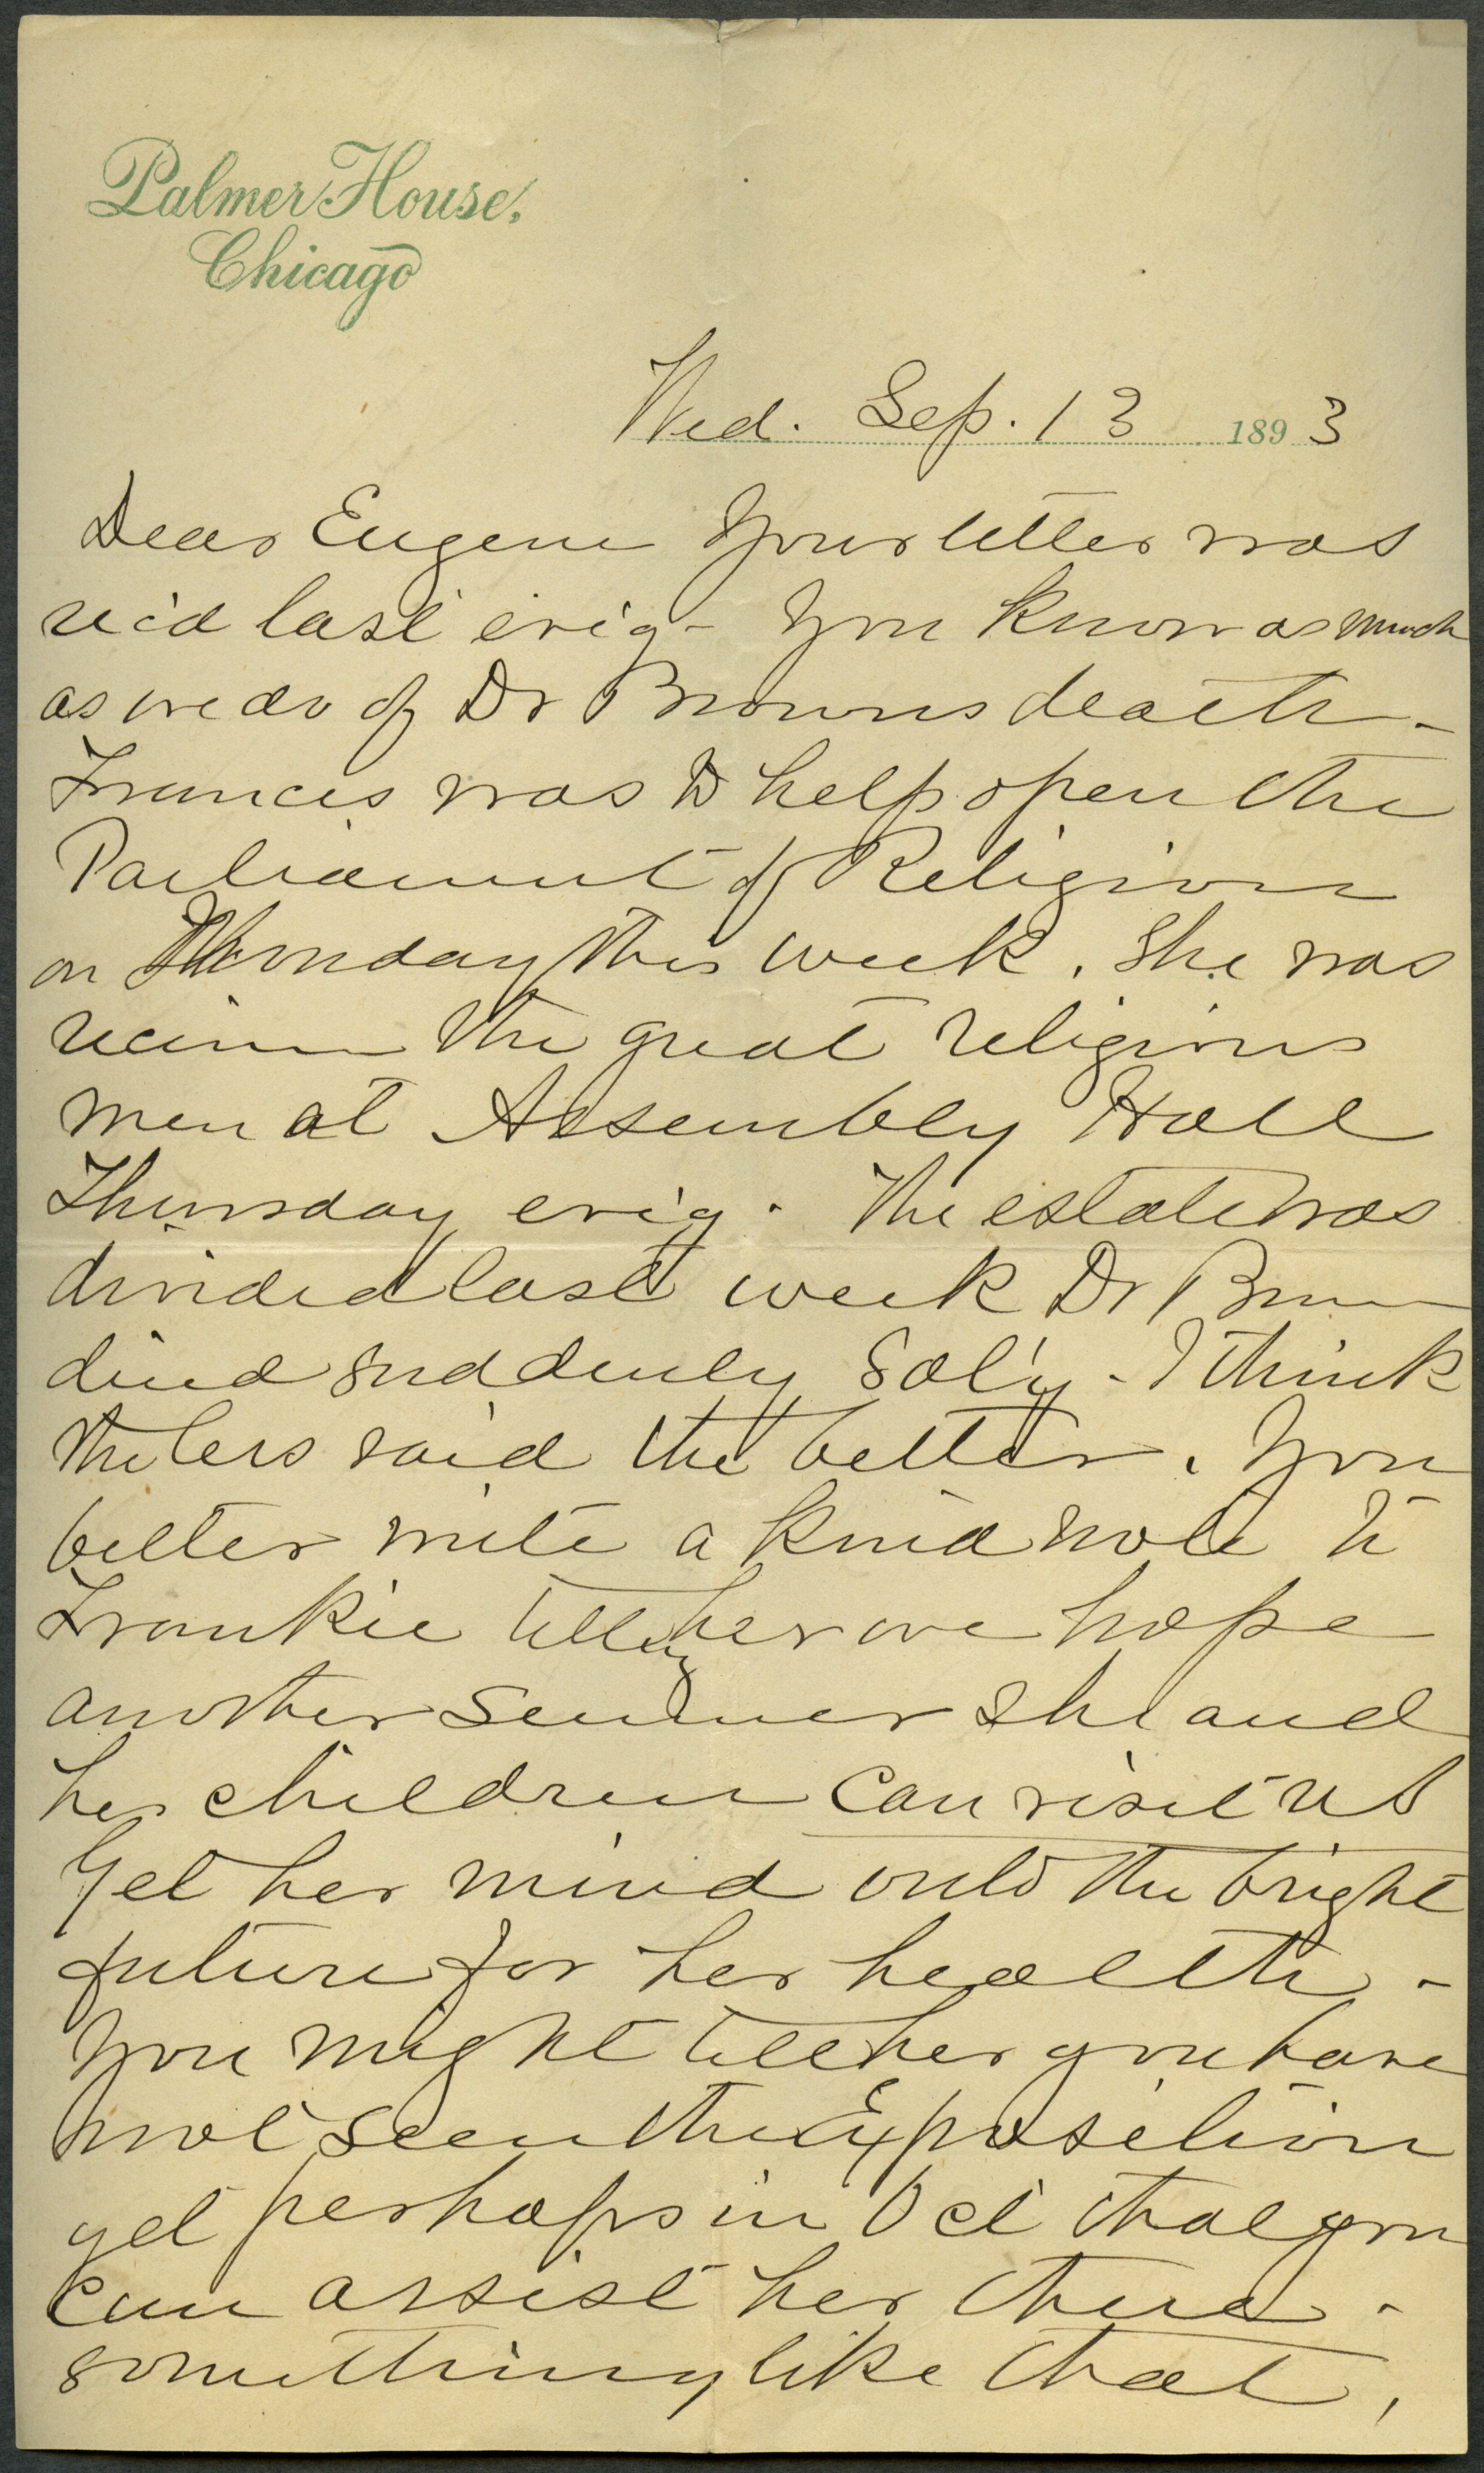 Palmer House,
Chicago
Wed. Sep. 13 1893
Dear Eugene Your letter was
rec'd last ev'g - You know as much
as we do of Dr Browns death -
Frances was to help open the
Parliament of Religion
on Monday this week. She was
receive the great religious
men at Assembly Hall
Thursday ev'g. The estate was
divided last week Dr Brown
died suddenly Sat'y - I think
the less said the better. You
better write a kind note to
Frankie telling her we hope
another summer she and
her children can visit us
Get her mind onto the bright
future for her health -
You might tell her you have
not seen the Exposition
yet perhaps in Oct that you
can assist her there -
something like that,